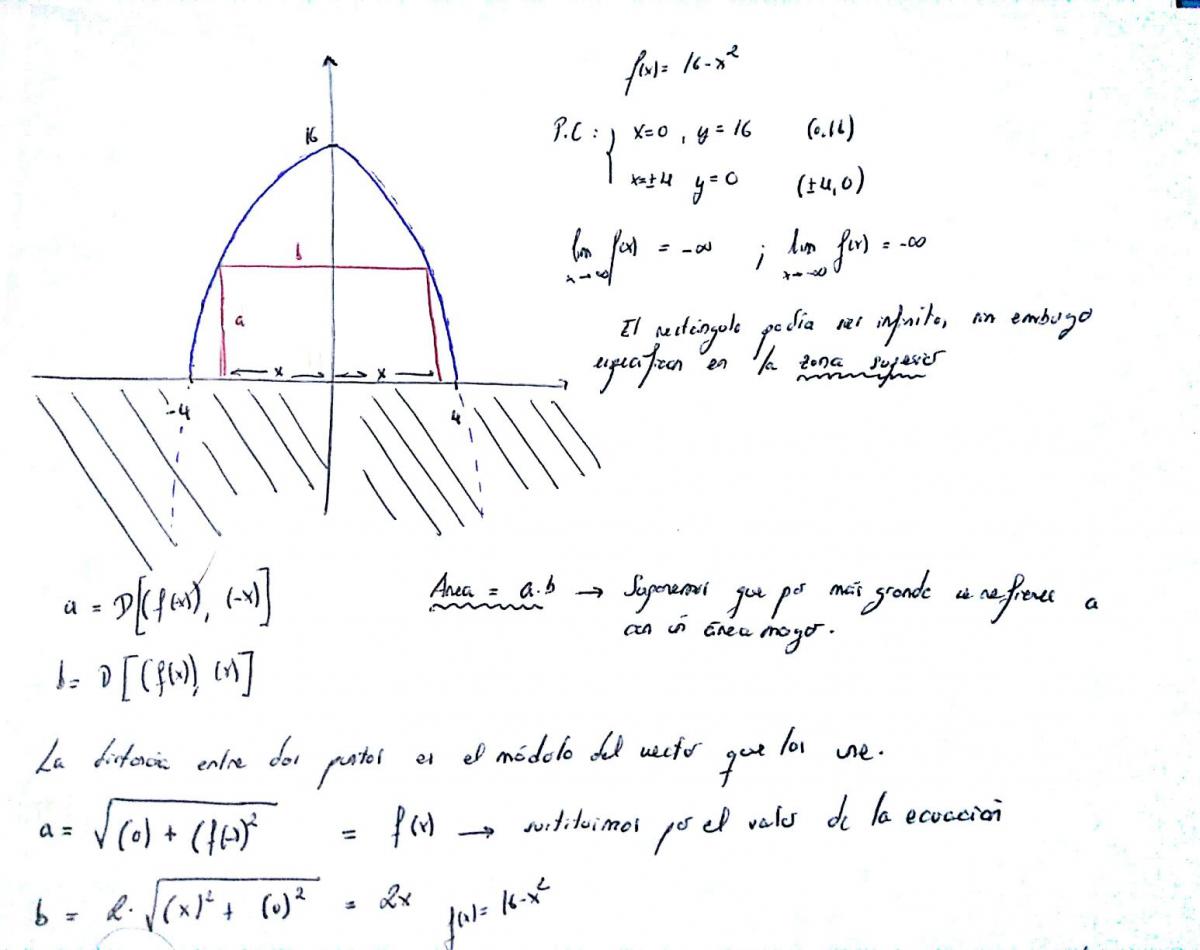 f(x)= 16-x²
P.C: { x=0, y=16 (0.16)
x=±4 y=0 (±4,0)
lim f(x) = -∞ ; lim f(x) = -∞
x→∞ x→-∞
El rectángulo podía ser infinito, sin embargo
especifican en la zona superior
16
b
a
x x
-4 4
a = D[(f(-x)), (-x)]
b= D[(f(x)), (x)]
Área = a.b → Suponemos que por más grande se refieren a
con un área mayor.
La distancia entre dos puntos es el módulo del vector que los une.
a = √(0) + (f(-x))² = f(x) → sustituimos por el valor de la ecuación
b = 2·√(x)² + (0)² = 2x f(x)= 16-x²